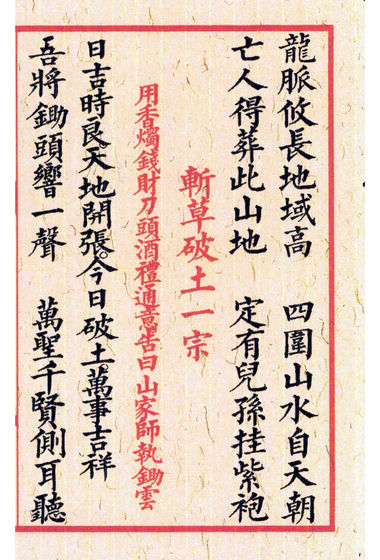 龍脈攸長地域高　四圍山水自天朝
亡人得葬此山地　定有兒孫挂紫袍
斬草破土一宗
用香燭錢財刀頭酒禮通意告曰山家師執鋤雲
日吉時良天地開張。今日破土。萬事吉祥
吾將鋤頭響一聲　萬聖千賢側耳聽